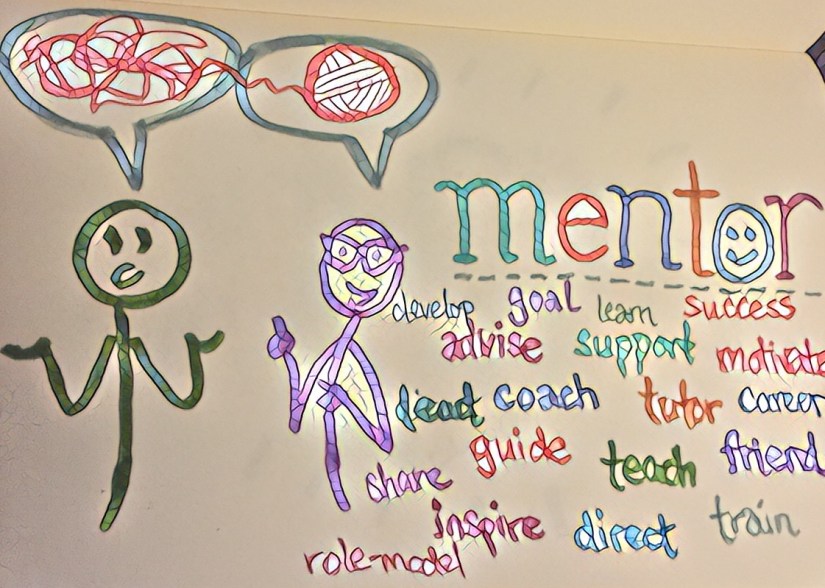 mentor
develop goal learn success
advise support motivate
lead coach tutor career
guide teach friend
share
inspire direct train
role-model